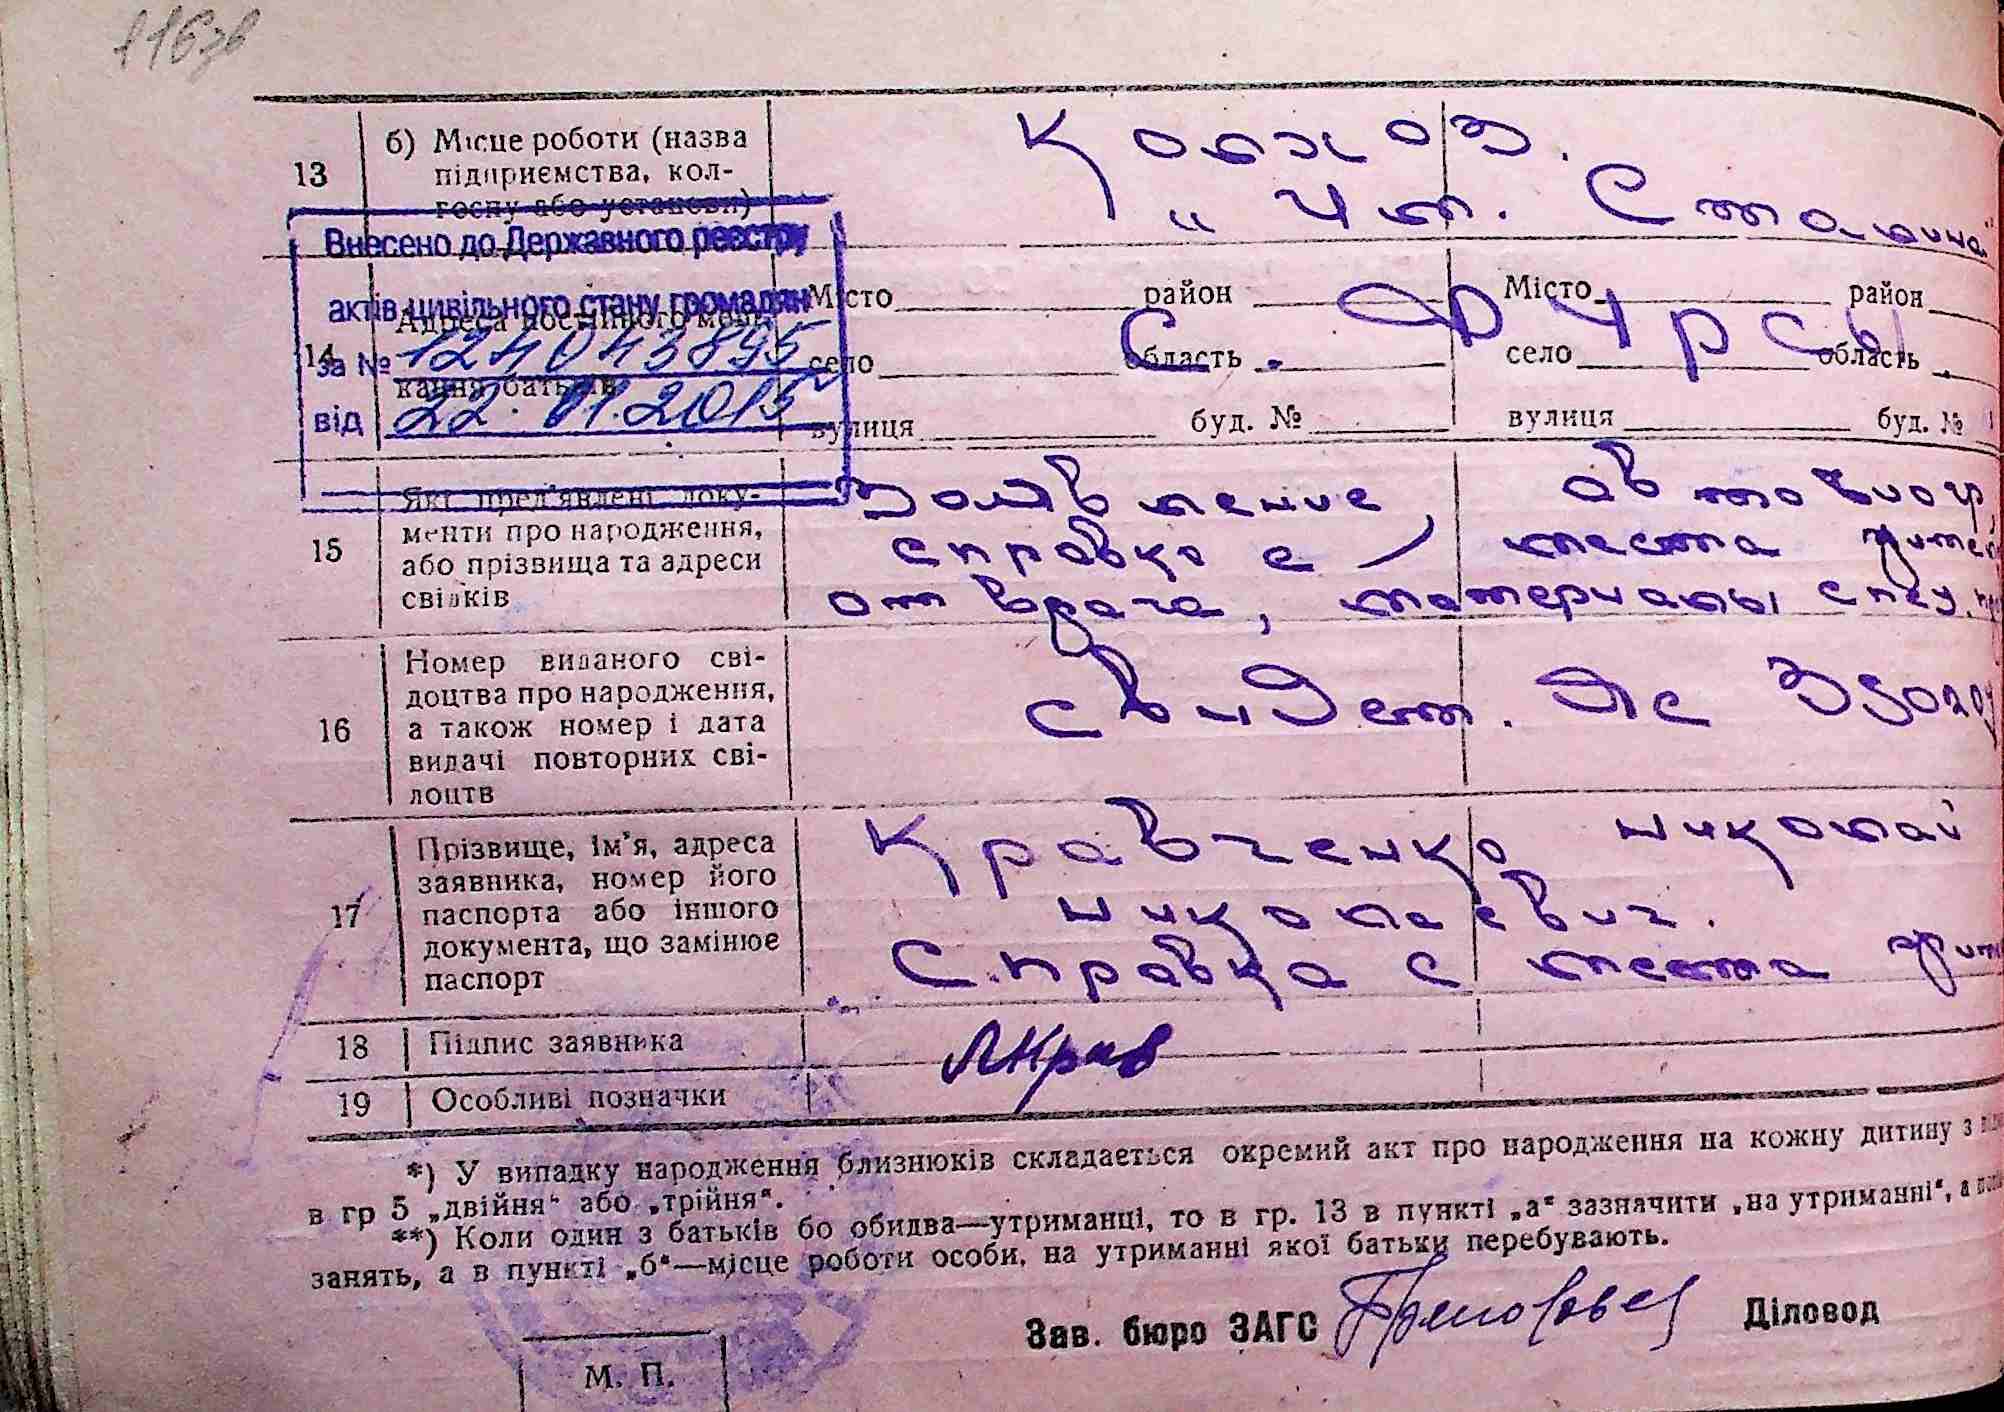 116зв
13
б) Місце роботи (назва
підприємства, кол-
госпу або установи)
Колхоз.
„Им. Сталина"
Внесено до Державного реєстру
актів цивільного стану громадян
за № 124043895
від 22.01.2015
14
Адреса постійного меш-
кання батьків
Місто район
село область
вулиця буд. №
Місто район
село область
вулиця буд. №
С.
15
Які пред'явлені доку-
менти про народження,
або прізвища та адреси
свідків
Заявление, автобиогр,
справка с места жител
от врача, материалы спец.
16
Номер виданого сві-
доцтва про народження,
а також номер і дата
видачі повторних сві-
доцтв
свидет.
17
Прізвище, ім’я, адреса
заявника, номер його
паспорта або іншого
документа, що замінює
паспорт
Кравченко Николай
Николаевич.
Справка с места жит
18
Підпис заявника
19
Особливі позначки
*) У випадку народження близнюків складається окремий акт про народження на кожну дитину з
в гр 5 „двійня“ або „трійня“.
**) Коли один з батьків бо обидва—утриманці, то в гр. 13 в пункті „а“ зазначити „на утриманні“, а
занять, а в пункті „б“—місце роботи особи, на утриманні якої батьки перебувають.
Зав. бюро ЗАГС Діловод
М. П.